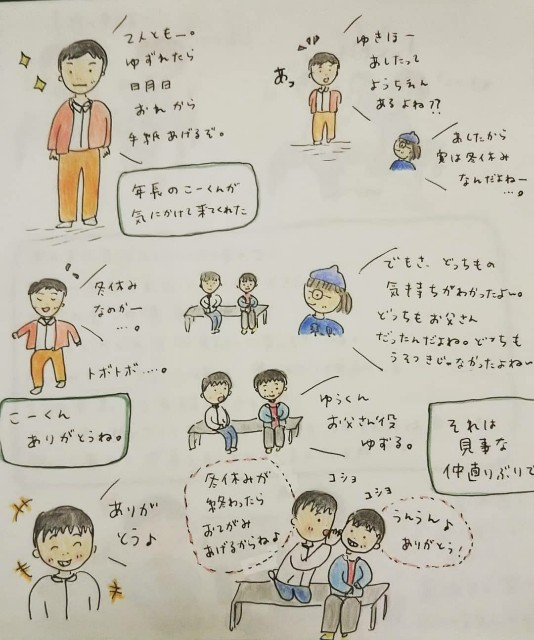 2人ともー。
ゆずれたら
明日
おれから
手紙あげるぞ。
年長のこーくんが
気にかけて来てくれた
あっ
ゆきほー
あしたって
ようちえん
あるよね??
あしたから
実は冬休み
なんだよねー
…。
冬休み
なのかー
…。
トボトボ…。
でもさ、どっちもの
気持ちがわかったよ〜。
どっちもお父さん
だったんだよね。どっちも
うそつきじゃなかったよね〜
こーくん
ありがとうね。
ゆうくん
お父さん役
ゆずる。
それは
見事な
仲直りぶりで
ありが
とうよ
冬休みが
終わったら
おてがみ
あげるからねよ
コショ
コショ
うんうんよ
ありがとう!